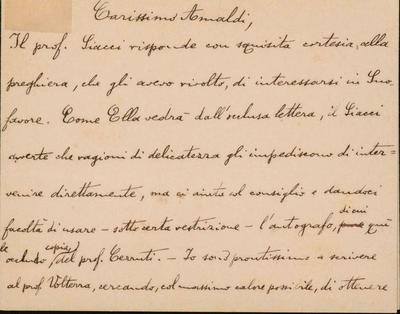 Carissimo Amaldi,
Il prof. Siacci risponde con squisita cortesia alla
preghiera, che gli avevo rivolto, di interessarsi in Suo
favore. Come Ella vedrà dall'inclusa lettera, il Siacci
avverte che ragioni di delicatezza gli impediscono di inter-
venire direttamente, ma ci aiuta col consiglio e dandoci
facoltà di usare - sotto certa restrizione - l'autografo, di cui qui
le accludo copia del prof. Cerruti. - Io sono prontissimo a scrivere
al prof. Volterra, cercando, col massimo calore possibile, di ottenere